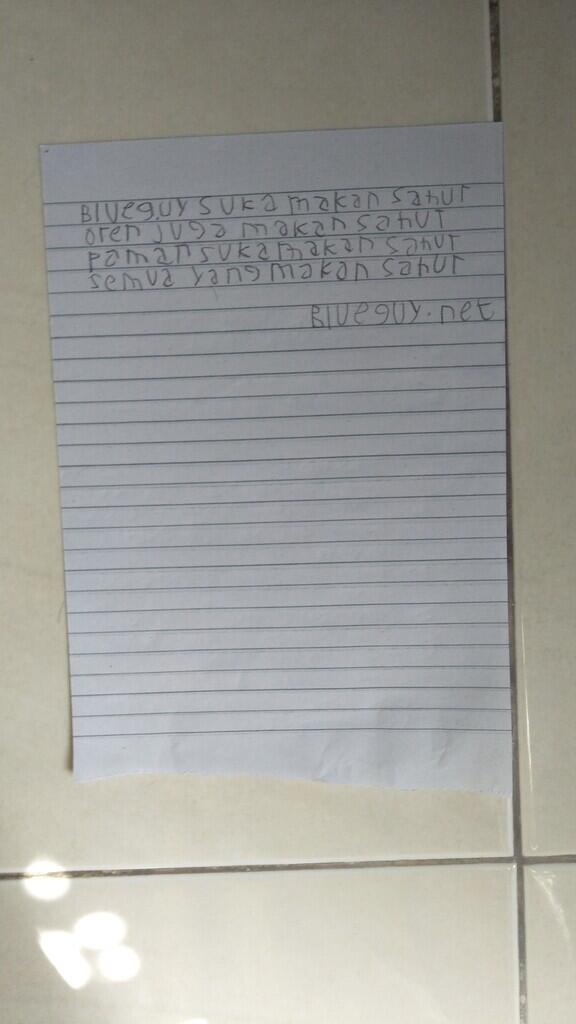 Blueguy suka makan sahur
oren juga makan sahur
paman suka makan sahur
semua yang makan sahur
Blueguy.net